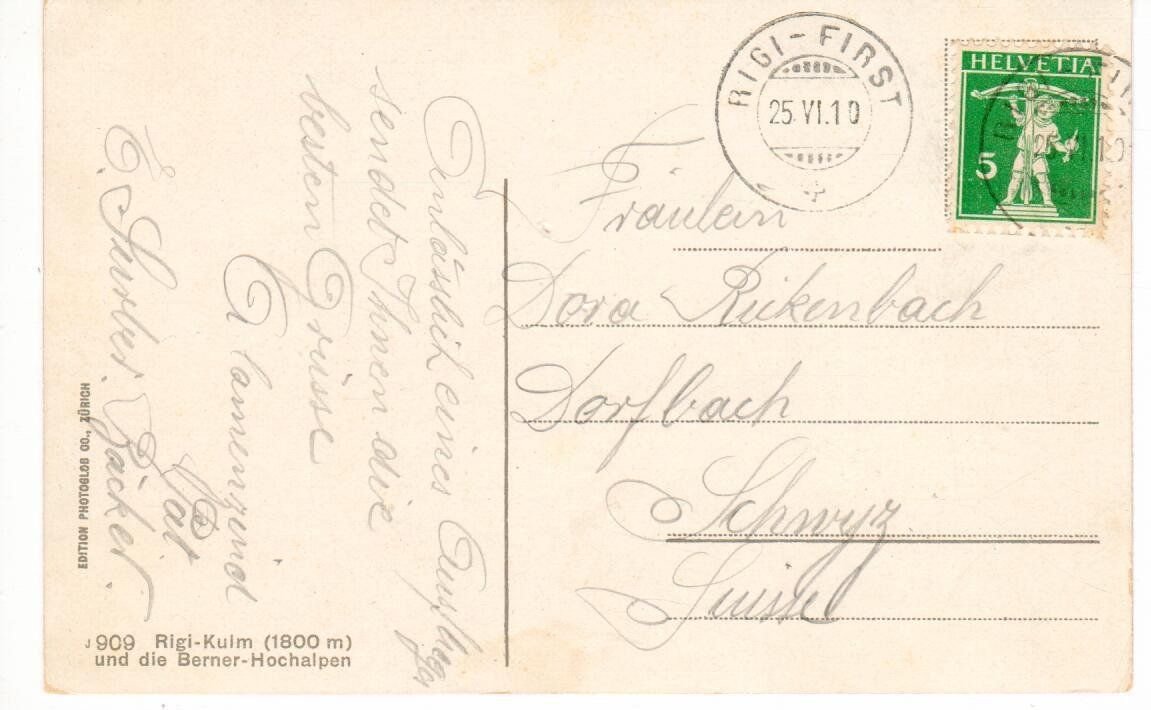 RIGI-FIRST
25. VI. 10
HELVETIA
5
Anlässlich eines Ausfluges
sendet Ihnen die
besten Grüsse
E. Surber. Bäcker.
Fräulein
Dora Rickenbach
Dorfbach
Schwyz
Suisse
EDITION PHOTOGLOB CO., ZÜRICH
J 909 Rigi-Kulm (1800 m)
und die Berner-Hochalpen